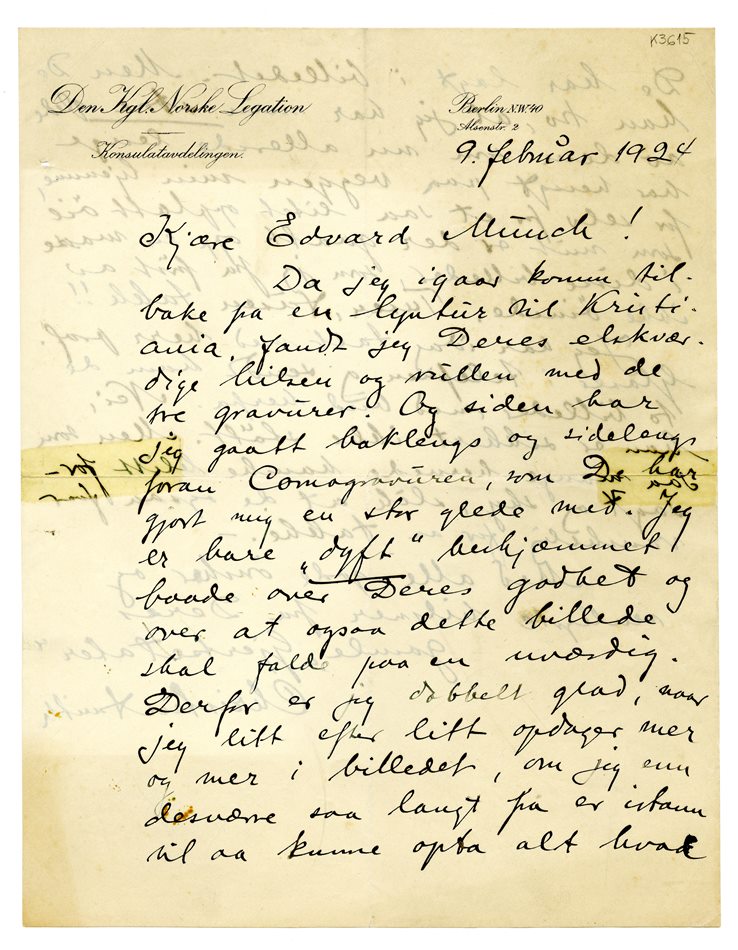 K3615
Den Kgl. Norske Legation
Konsulatavdelingen.
Berlin N.W. 40
Alsenstr. 2
9. februar 1924
Kjære Edvard Munch!
Da jeg igaar komm til-
bake på en lyntur til Kristi-
ania, fandt jeg Deres elskvær-
dige hilsen og rullen med de
tre gravurer. Og siden har
jeg gaatt baklengs og sidelengs
foran Comagravuren, som De har
gjort mig en stor glede med. Jeg
er bare „dyft“ beskjæmmet
baade over Deres godhet og
over at ogsaa dette billede
skal falde paa en uværdig.
Derfor er jeg dobbelt glad, naar
jeg litt efter litt opdager mer
og mer i billedet, om jeg enn
desværre saa langt fra er istann
til aa kunne opta alt hvad